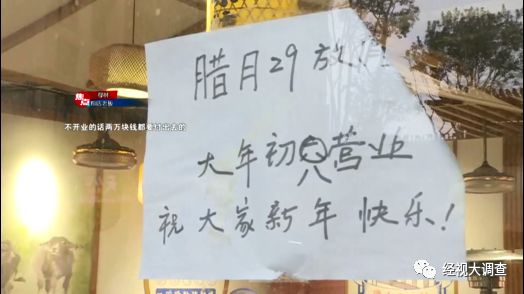 腊月29放
不开业的话两万块钱都要付出去的
大年初八营业
祝大家新年快乐!
经视大调查